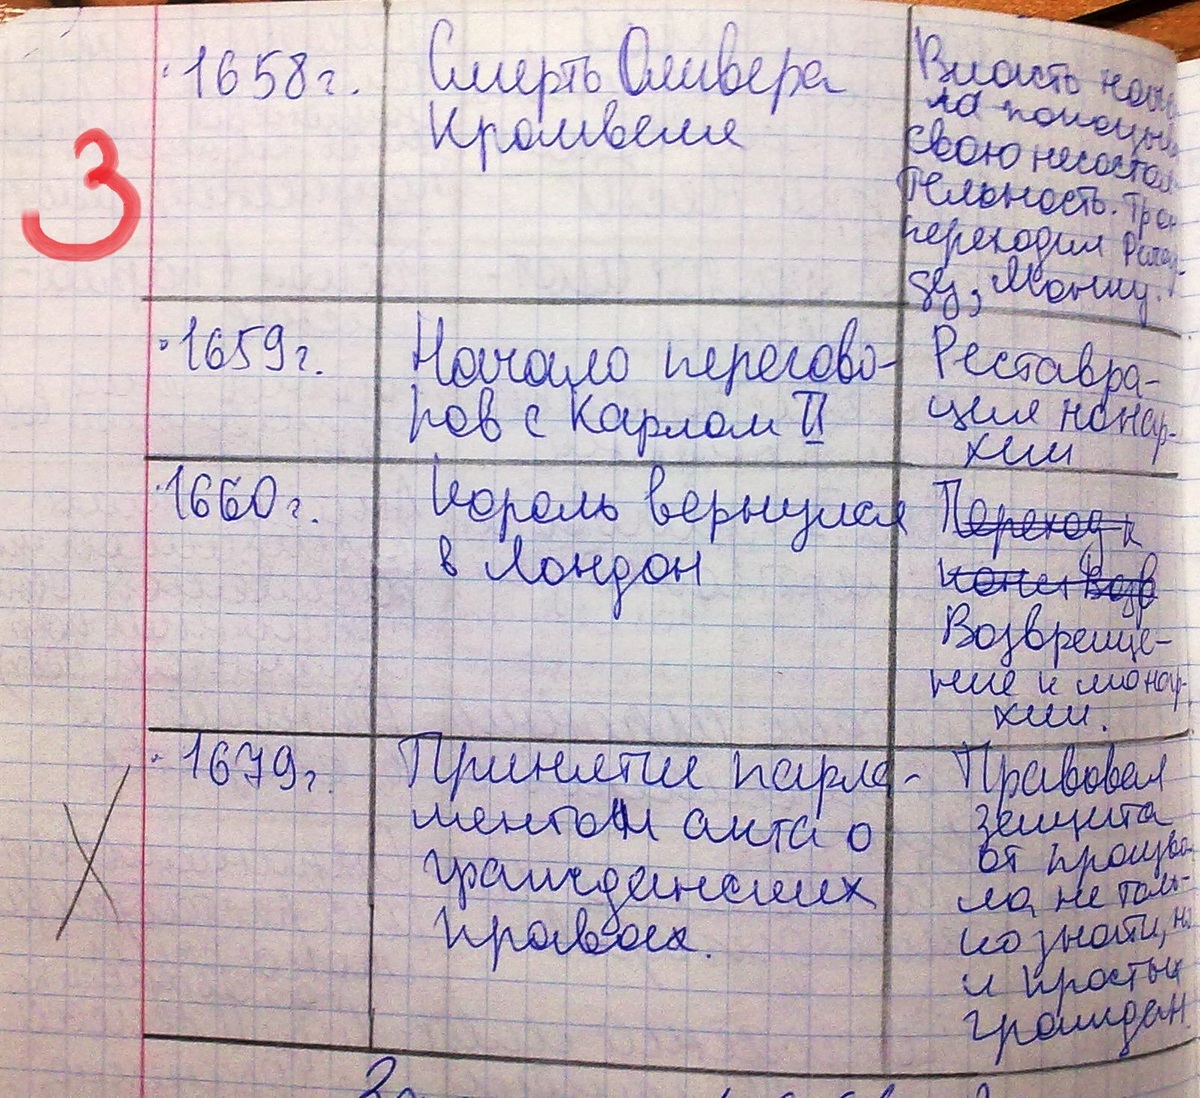 3
1658г.
Смерть Оливера
Кромвеля
Власть
ла
свою несостоя-
тельность.
переходил
Монку.
1659г.
Начало перегово-
ров с Карлом II
Реставра-
ция монар-
хии
1660г.
Король вернулся
в Лондон
Переход к
Возвраще-
ние к монар-
хии.
1679г.
Принятие парла-
ментом акта о
гражданских
правах.
Правовая
защита
от произво-
ла, не толь-
ко знати, но
и простых
граждан.